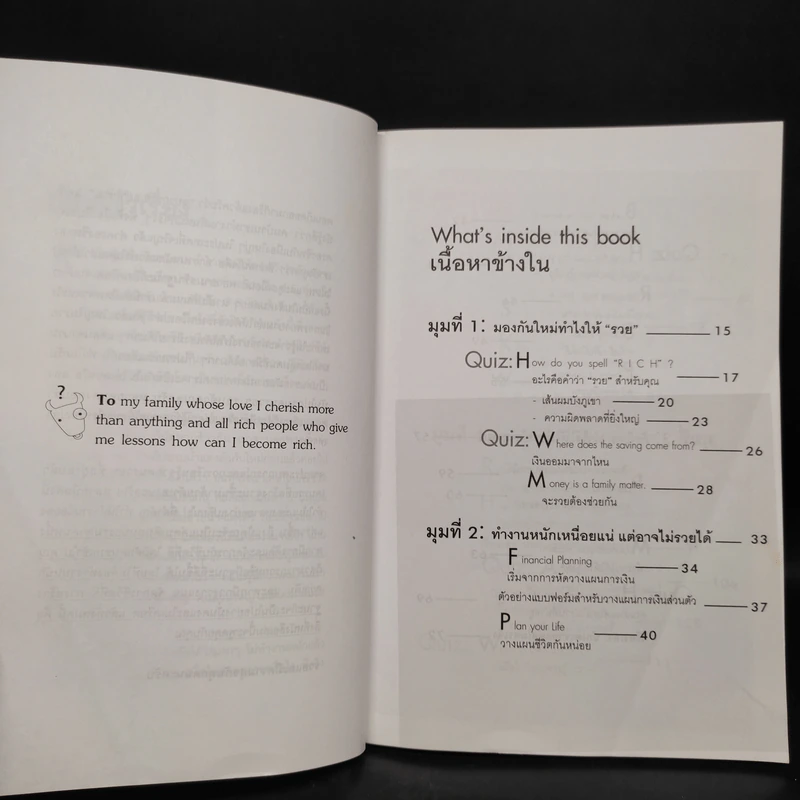 ?
To my family whose love I cherish more
than anything and all rich people who give
me lessons how can I become rich.
What's inside this book
เนื้อหาข้างใน
มุมที่ 1: มองกันใหม่ทำไงให้ "รวย" 15
Quiz: How do you spell "R I C H" ?
อะไรคือคำว่า "รวย" สำหรับคุณ 17
- เส้นผมบังภูเขา 20
- ความผิดพลาดที่ยิ่งใหญ่ 23
Quiz: Where does the saving come from? 26
เงินออมมาจากไหน
Money is a family matter. 28
จะรวยต้องช่วยกัน
มุมที่ 2: ทำงานหนักเหนื่อยแน่ แต่อาจไม่รวยได้ 33
Financial Planning 34
เริ่มจากการหัดวางแผนการเงิน
ตัวอย่างแบบฟอร์มสำหรับวางแผนการเงินส่วนตัว 37
Plan your Life 40
วางแผนชีวิตกันหน่อย